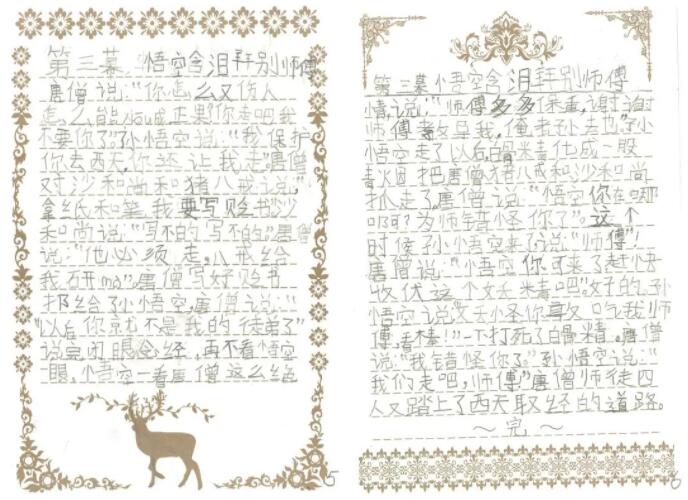 第三幕 悟空含泪拜别师傅
唐僧说:“你怎么又伤人
怎么能xiu成正果你走吧我
不要你了”孙悟空说:“我保护
你去西天,你还让我走”唐僧
对沙和尚和猪八戒说,“
拿纸和笔,我要写贬书沙
和尚说:“写不的写不的”唐僧
说:“他必须走,八戒给
我研mò”唐僧写好贬书
扔给了孙悟空,唐僧说:“
以后你就不是我的徒弟了”
说完闭眼念经,再不看悟空
一眼,小悟空一看唐僧这么绝
5
第三幕悟空含泪拜别师傅
情,说:“师傅多多保重,谢谢
师傅教导我,俺老孙去也”孙
悟空走了以后,白骨精化成一股
青烟把唐僧猪八戒和沙和尚
抓走了唐僧说:“悟空你在哪
啊?为师错怪你了”这个
时候孙小悟空来了说:“师傅”!
唐僧说:“小悟空你可来了赶快
收伏这个妖精吧”好的,孙
小悟空说“妖小怪你敢吃我师
傅,看棒!”一下打死了白骨精。唐僧
说:“我错怪你了”孙小悟空说:“
我们走吧,师傅”唐僧师徒四
人又踏上了西天取经的道路。
～完～
6